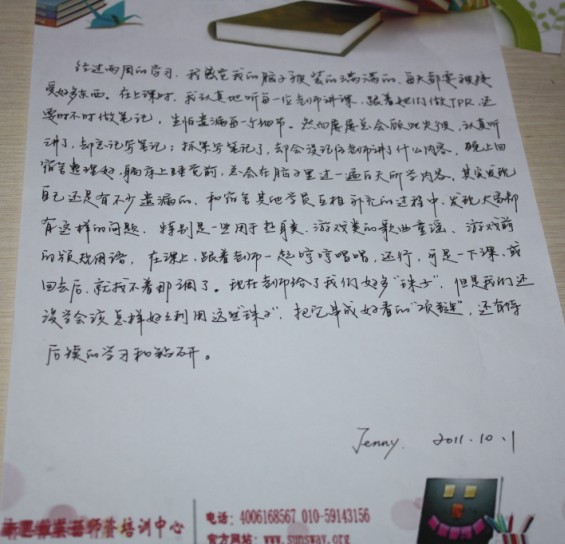 经过两周的学习，我感觉我的脑子被装的满满的，每天都要被接
受好多东西。在上课时，我认真地听每一位老师讲课，跟着她们做TPR，还
要时不时做笔记，生怕遗漏每一个细节。然而总会顾此失彼，认真听
讲了，却忘记写笔记；抓紧写笔记了，却会没记住老师讲了什么内容。晚上回
宿舍整理好，躺床上睡觉前，总会在脑子里过一遍白天所学内容，其实发现
自己还是有不少遗漏的，和宿舍其他学员互相补充的过程中，发现大家都
有这样的问题，特别是一些用于热身类、游戏类的歌曲童谣、游戏前
的口令用语，在课上，跟着老师一起哼哼唱唱，还行，可是一下课，或
回去后，就找不着那调了。现在老师给了我们好多“珠子”，但是我们还
没学会该怎样好好利用这些“珠子”，把它串成好看的“项链”，还有待
后续的学习和钻研。
Jenny. 2011.10.1
师资培训中心
电话：4006168567 010-59143156
官方网站：www.sunsway.org